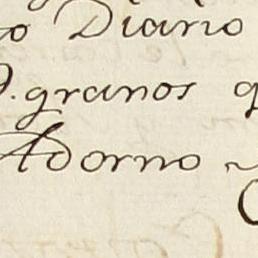 o Diario
D. granos q
Adorno